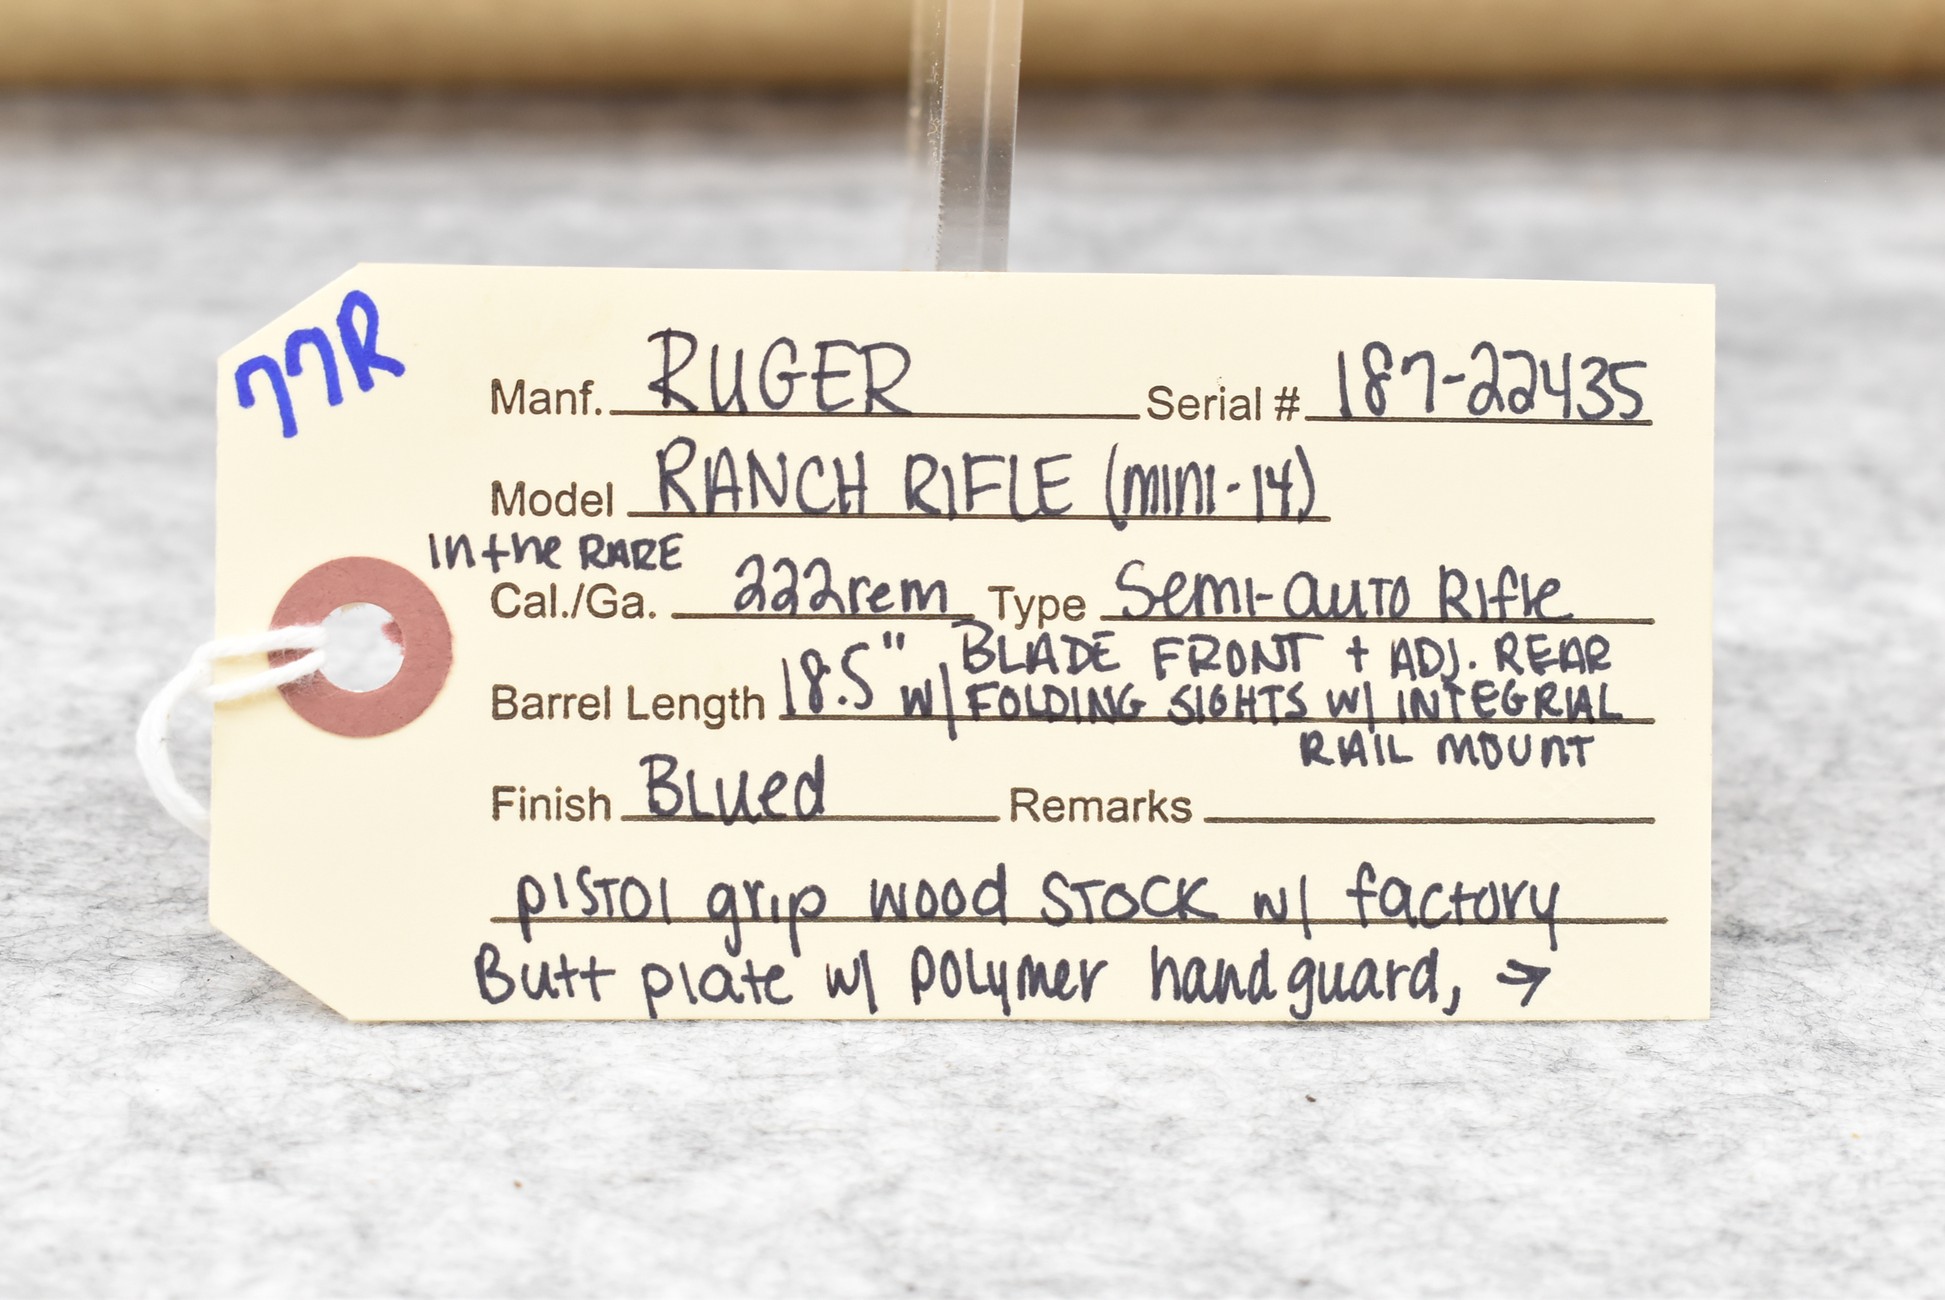 77R
Manf. RUGER Serial # 187-22435
Model RANCH RIFLE (mini-14)
In the RARE
Cal./Ga. 222rem Type Semi-auto Rifle
BLADE FRONT + ADJ. REAR
Barrel Length 18.5" w/ FOLDING SIGHTS w/ INTEGRIAL
RAIL MOUNT
Finish Blued Remarks
pistol grip wood stock w/ factory
Butt plate w/ polymer handguard, →